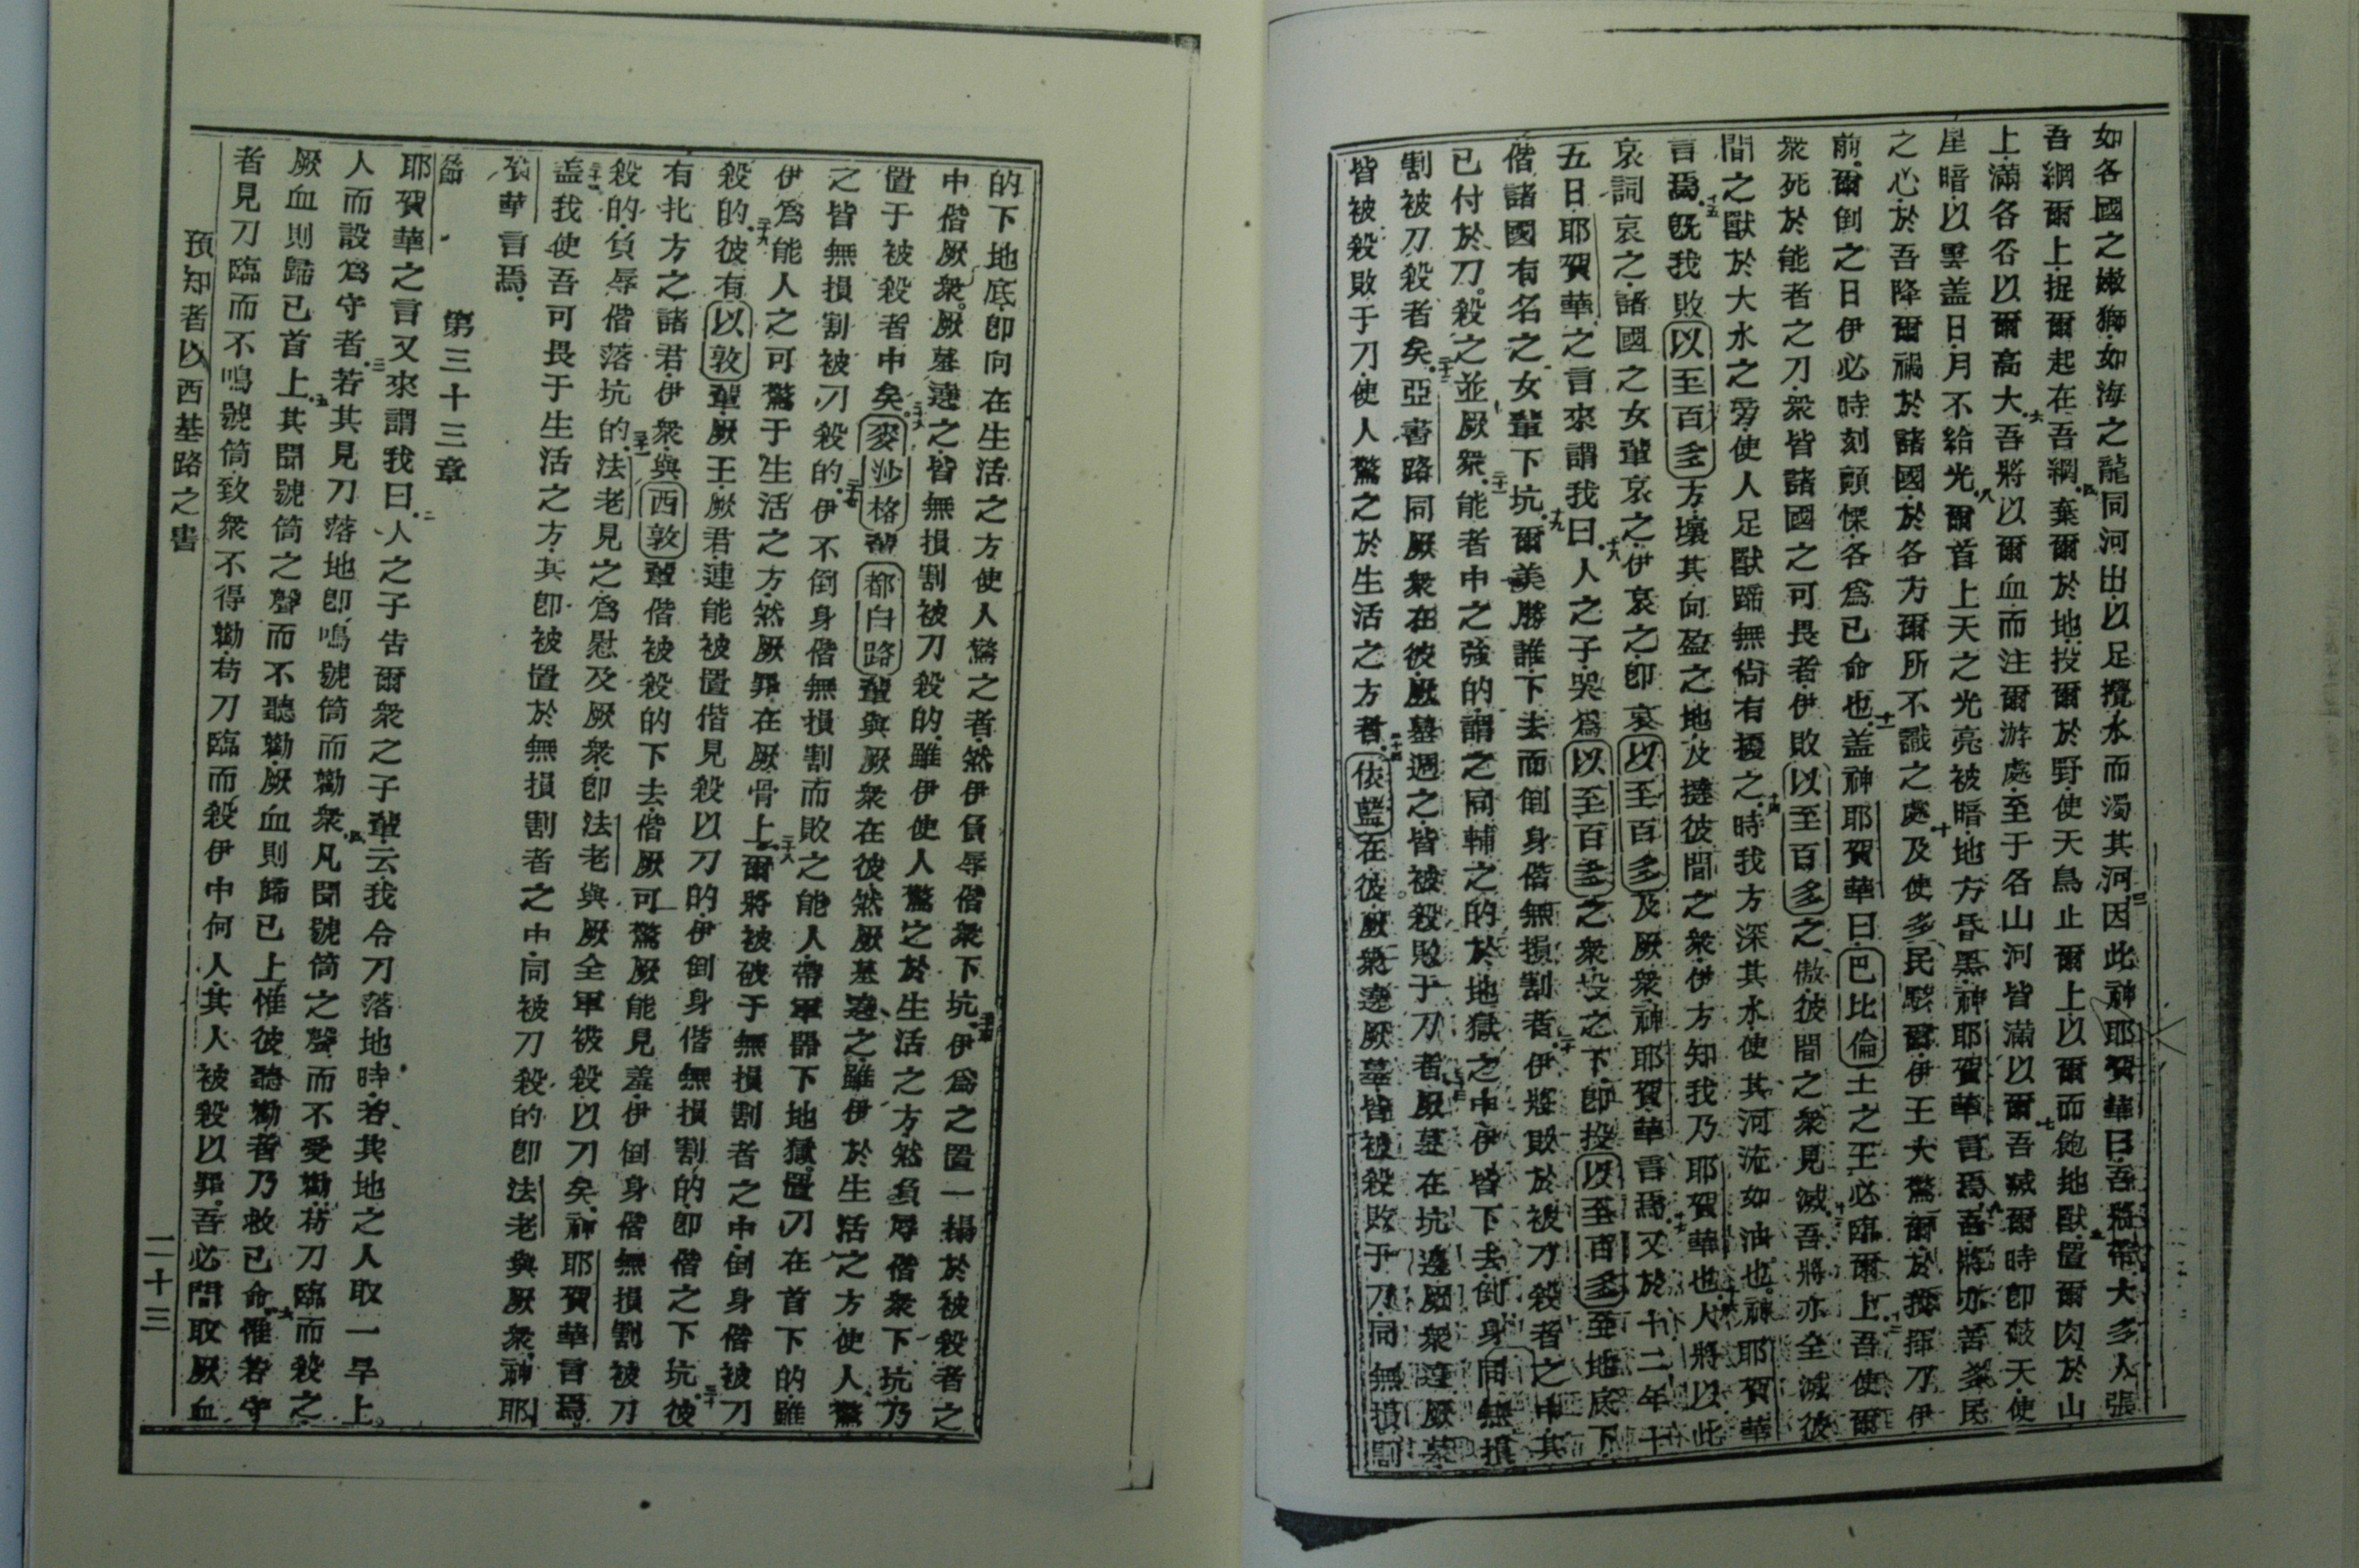 如各國之嫩獅如海之龍同河出以足攪水而濁其河三因此神耶賀華曰吾將帶大多人張
吾網爾上捉爾起在吾網四棄爾於地投爾於野使天鳥止爾上以爾而飽地獸五置爾肉於山
上滿各谷以爾高大六吾將以爾血而注爾游處至于各山河皆滿以爾七吾滅爾時卽蔽天使
星暗以雲盖日月不給光八爾首上天之光亮被暗地方昏黑神耶賀華言焉九吾將亦苦多民
之心於吾降爾禍於諸國於各方爾所不識之處十及使多民駭爾伊王大驚爾於我揮刀伊
前爾倒之日伊必時刻顫慄各爲已命也十一盖神耶賀華曰巴比倫王之王必臨爾上十二吾使爾
衆死於能者之刀衆皆諸國之可畏者伊敗以至百多之傲彼間之衆見滅十三吾將亦全滅彼
間之獸於大水之旁使人足獸蹄無尙有擾之十四時我方深其水使其河流如油也神耶賀華
言焉十五旣我敗以至百多方壞其向盈之地及撻彼間之衆伊方知我乃耶賀華也十六人將以此
哀詞哀之諸國之女輩哀之伊哀之卽哀以至百多及厥衆神耶賀華言焉十七又於十二年十
五日耶賀華之言來謂我曰十八人之子哭爲以至百多之衆投之下卽投以至百多至地底下
偕諸國有名之女輩下坑十九爾美勝誰下去而倒身偕無損割者二十伊將敗於被刀殺者之中其
已付於刀殺之並厥衆二十一能者中之強的謂之同輔之的於地獄之中伊皆下去倒身同無損
割被刀殺者矣二十二亞書路同厥衆在彼厥墓週之皆被殺敗于刀者二十三厥墓在坑邊厥衆遶厥墓
皆被殺敗于刀使人驚之於生活之方者二十四依藍在彼厥衆遶厥墓皆被殺敗于刀同無損割
的下地底卽向在生活之方使人驚之者然伊負辱偕衆下坑二十五伊爲之置一榻於被殺者之
中偕厥衆厥墓遶之皆無損割被刀殺的雖伊使人驚之於生活之方然負辱偕衆下坑乃
置于被殺者中矣二十六麥沙格輩都白路輩與厥衆在彼然厥墓遶之雖伊於生活之方使人驚
之皆無損割被刀殺的二十七伊不倒身偕無損割而敗之能人帶軍器下地獄置刀在首下的雖
伊爲能人之可驚于生活之方然厥罪在厥骨上二十八爾將被破于無損割者之中倒身偕被刀
殺的二十九彼有以敦輩厥王厥君連能被置偕見殺以刀的伊倒身偕無損割的卽偕之下坑三十彼
有北方之諸君伊衆與西敦輩偕被殺的下去偕厥可驚厥能見羞伊倒身偕無損割被刀
殺的負辱偕落坑的三十一法老見之爲慰及厥衆卽法老與厥全軍被殺以刀矣神耶賀華言焉
三十二盖我使吾可畏于生活之方其卽被置於無損割者之中同被刀殺的卽法老與厥衆神耶
賀華言焉
節 第三十三章
耶賀華之言又來謂我曰二人之子告爾衆之子輩云我令刀落地時若其地之人取一早上
人而設爲守者三若其見刀落地卽鳴號筒而勸衆四凡聞號筒之聲而不受勸苟刀臨而殺之
厥血則歸已首上五其聞號筒之聲而不聽勸厥血則歸已上惟彼聽勸者乃救已命六惟若守
者見刀臨而不鳴號筒致衆不得勸苟刀臨而殺伊中何人其人被殺以罪吾必問取厥血
預知者以西基路之書
二十三